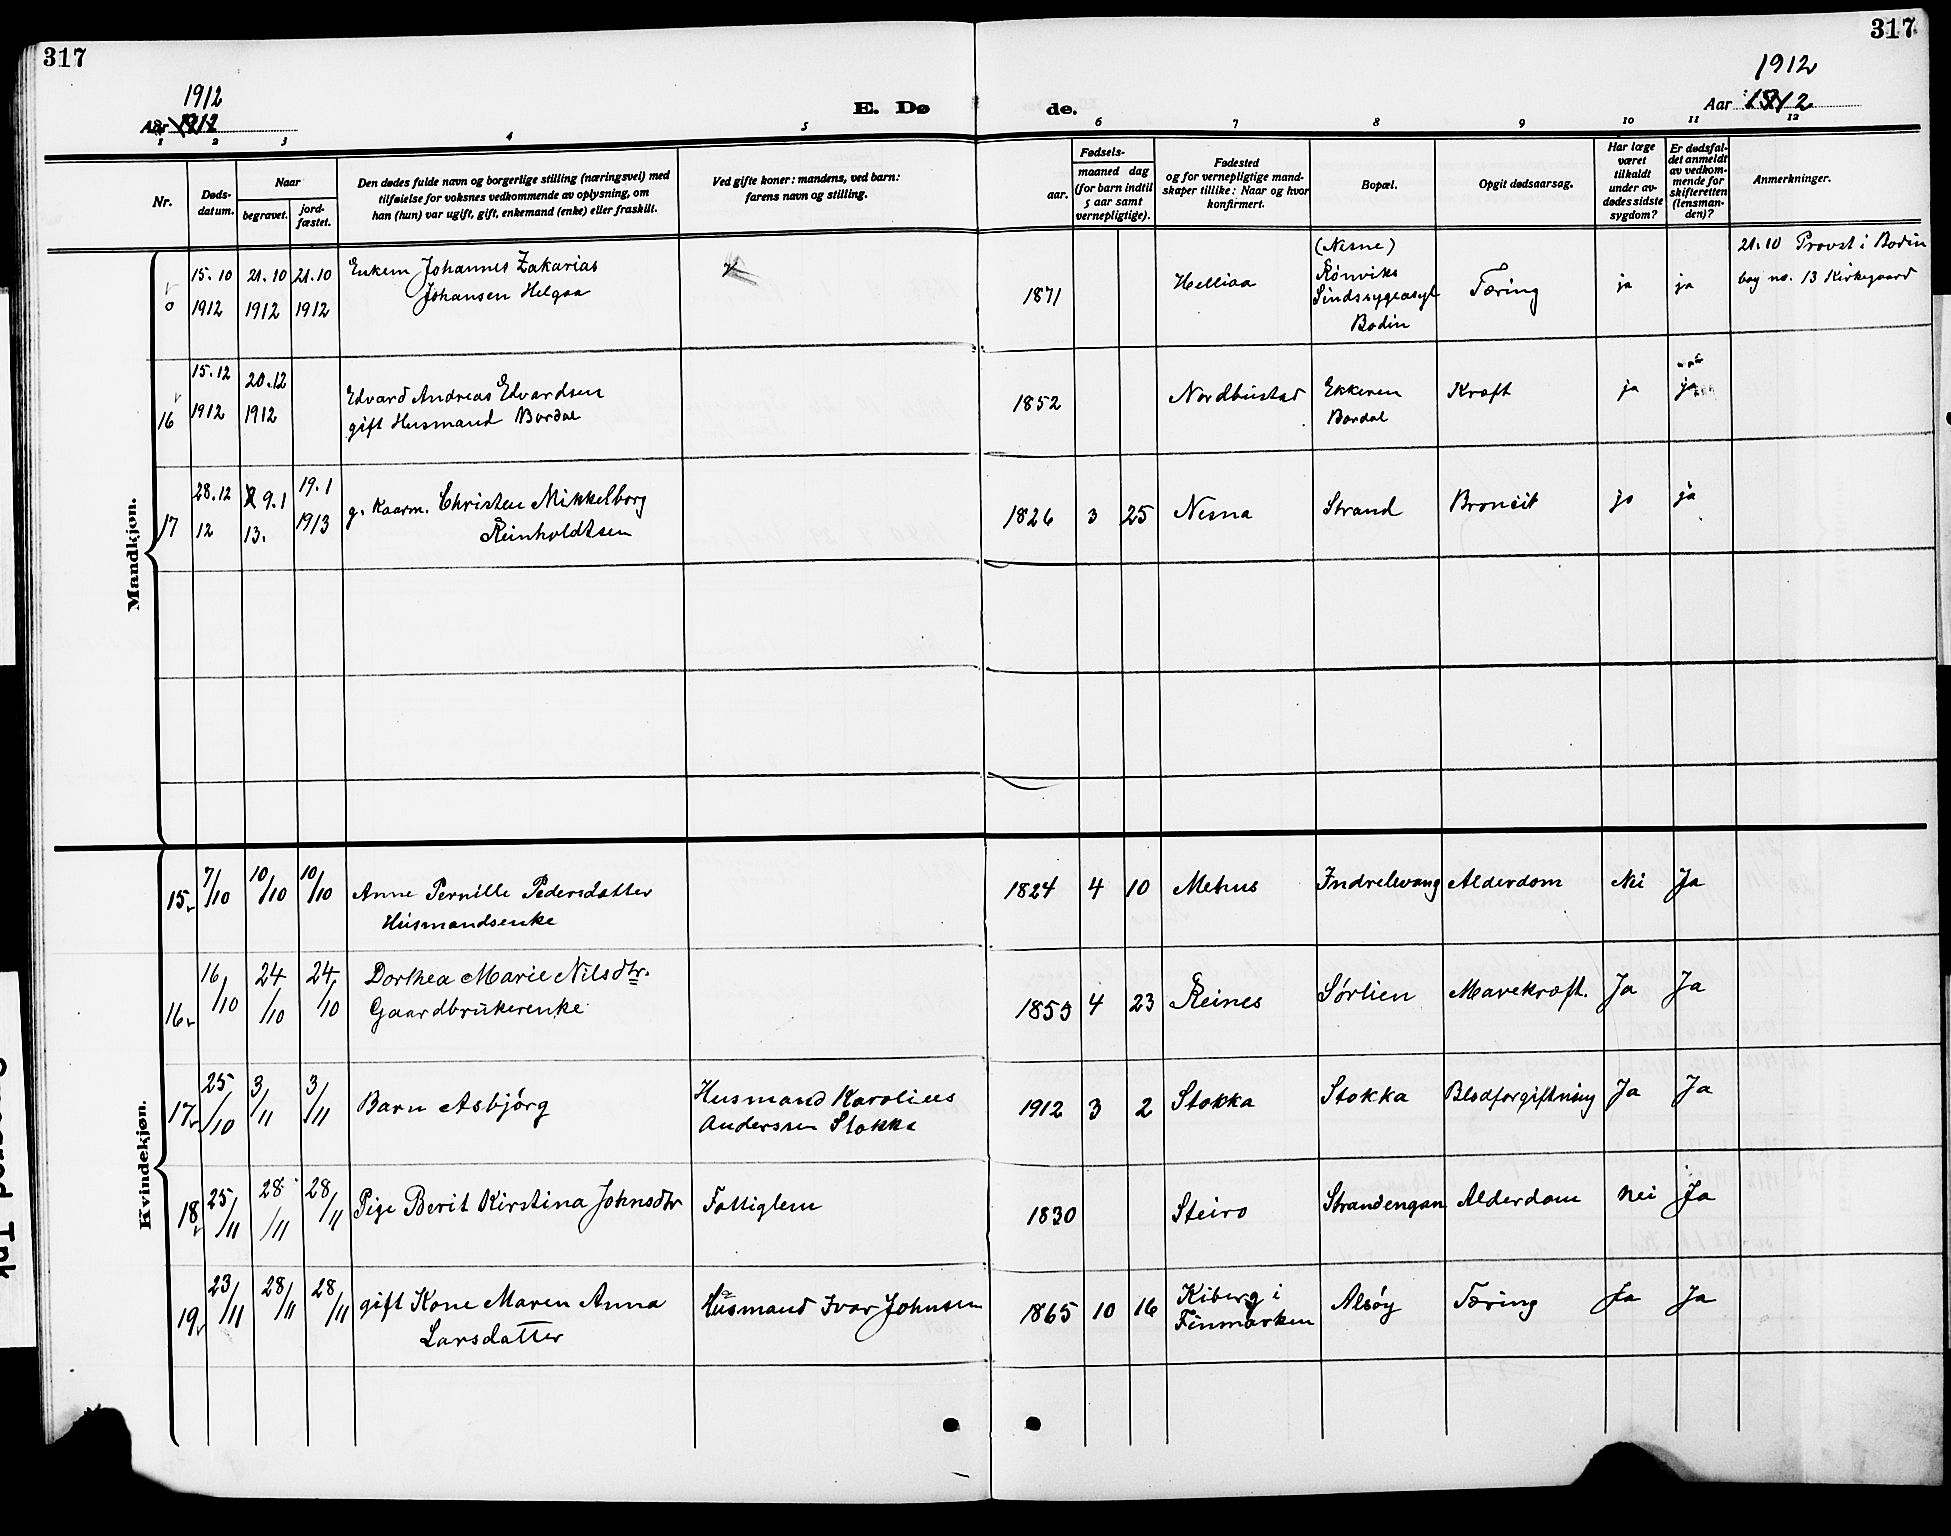 317
317
1912
Aar 1912
E. Dø
de.
1912
Aar 1912
1 2 3 4 5 6 7 8 9 10 11 12
Nr.
Døds-
datum.
Naar
begravet.
jord-
fæstet.
Den dødes fulde navn og borgerlige stilling (næringsvei) med
tilføielse for voksnes vedkommende av oplysning, om
han (hun) var ugift, gift, enkemand (enke) eller fraskilt.
Ved gifte koner: mandens, ved barn:
farens navn og stilling.
Fødsels-
aar.
maaned dag
(for barn indtil
5 aar samt
vernepligtige).
Fødested
og for vernepligtige mand-
skaper tillike: Naar og hvor
konfirmert.
Bopæl.
Opgit dødsaarsag.
Har læge
været
tilkaldt
under av-
dødes sidste
sygdom?
Er dødsfal-
det anmeldt
av vedkom-
mende for
skifteretten
(lensman-
den)?
Anmerkninger.
Mandkjøn.
0 15.10 1912 21.10 1912 21.10 1912
Enkem Johannes Zakarias
Johansen Helgaa
1871
Helliaa
(Nesne)
Rönviks
Sindssygeasyl
Bodin
Tæring
ja
ja
21.10 Provst i Bodin
beg no. 13 Kirkegaard
16 15.12 1912 20.12 1912
Edvard Andreas Edvardsen
gift Husmand Bardal
1852
Nordbustad
Ekkeren
Bardal
Kræft
ja
ja
17 28.12 12 9.1 13. 19.1 1913
g. Kaarm. Christen Mikkelborg
Reinholdtsen
1826 3 25
Nesna
Strand
Broncit
ja
ja
Kvindekjøn.
15 7/10 10/10 10/10
Anne Pernille Pedersdatter
Husmandsenke
1824 4 10
Mehus
Indrelevang
Alderdom
Nei
Ja
16 16/10 24/10 24/10
Dorthea Marie Nilsdtr.
Gaardbrukerenke
1853 4 23
Reines
Sørlien
Mavekræft.
Ja
Ja
17 25/10 3/11 3/11
Barn Asbjörg
Husmand Karolius
Anderssen Stokka
1912 3 2
Stokka
Stokka
Blodforgiftning
Ja
Ja
18 25/11 28/11 28/11
Pige Berit Kirstina Johnsdtr
Fattiglem
1830
Steiro
Strandengan
Alderdom
Nei
Ja
19 23/11 28/11 28/11
gift Kone Maren Anna
Larsdatter
Husmand Ivar Johnsen
1865 10 16
Kiberg i
Finmarken
Alsöy
Tæring
Ja
Ja